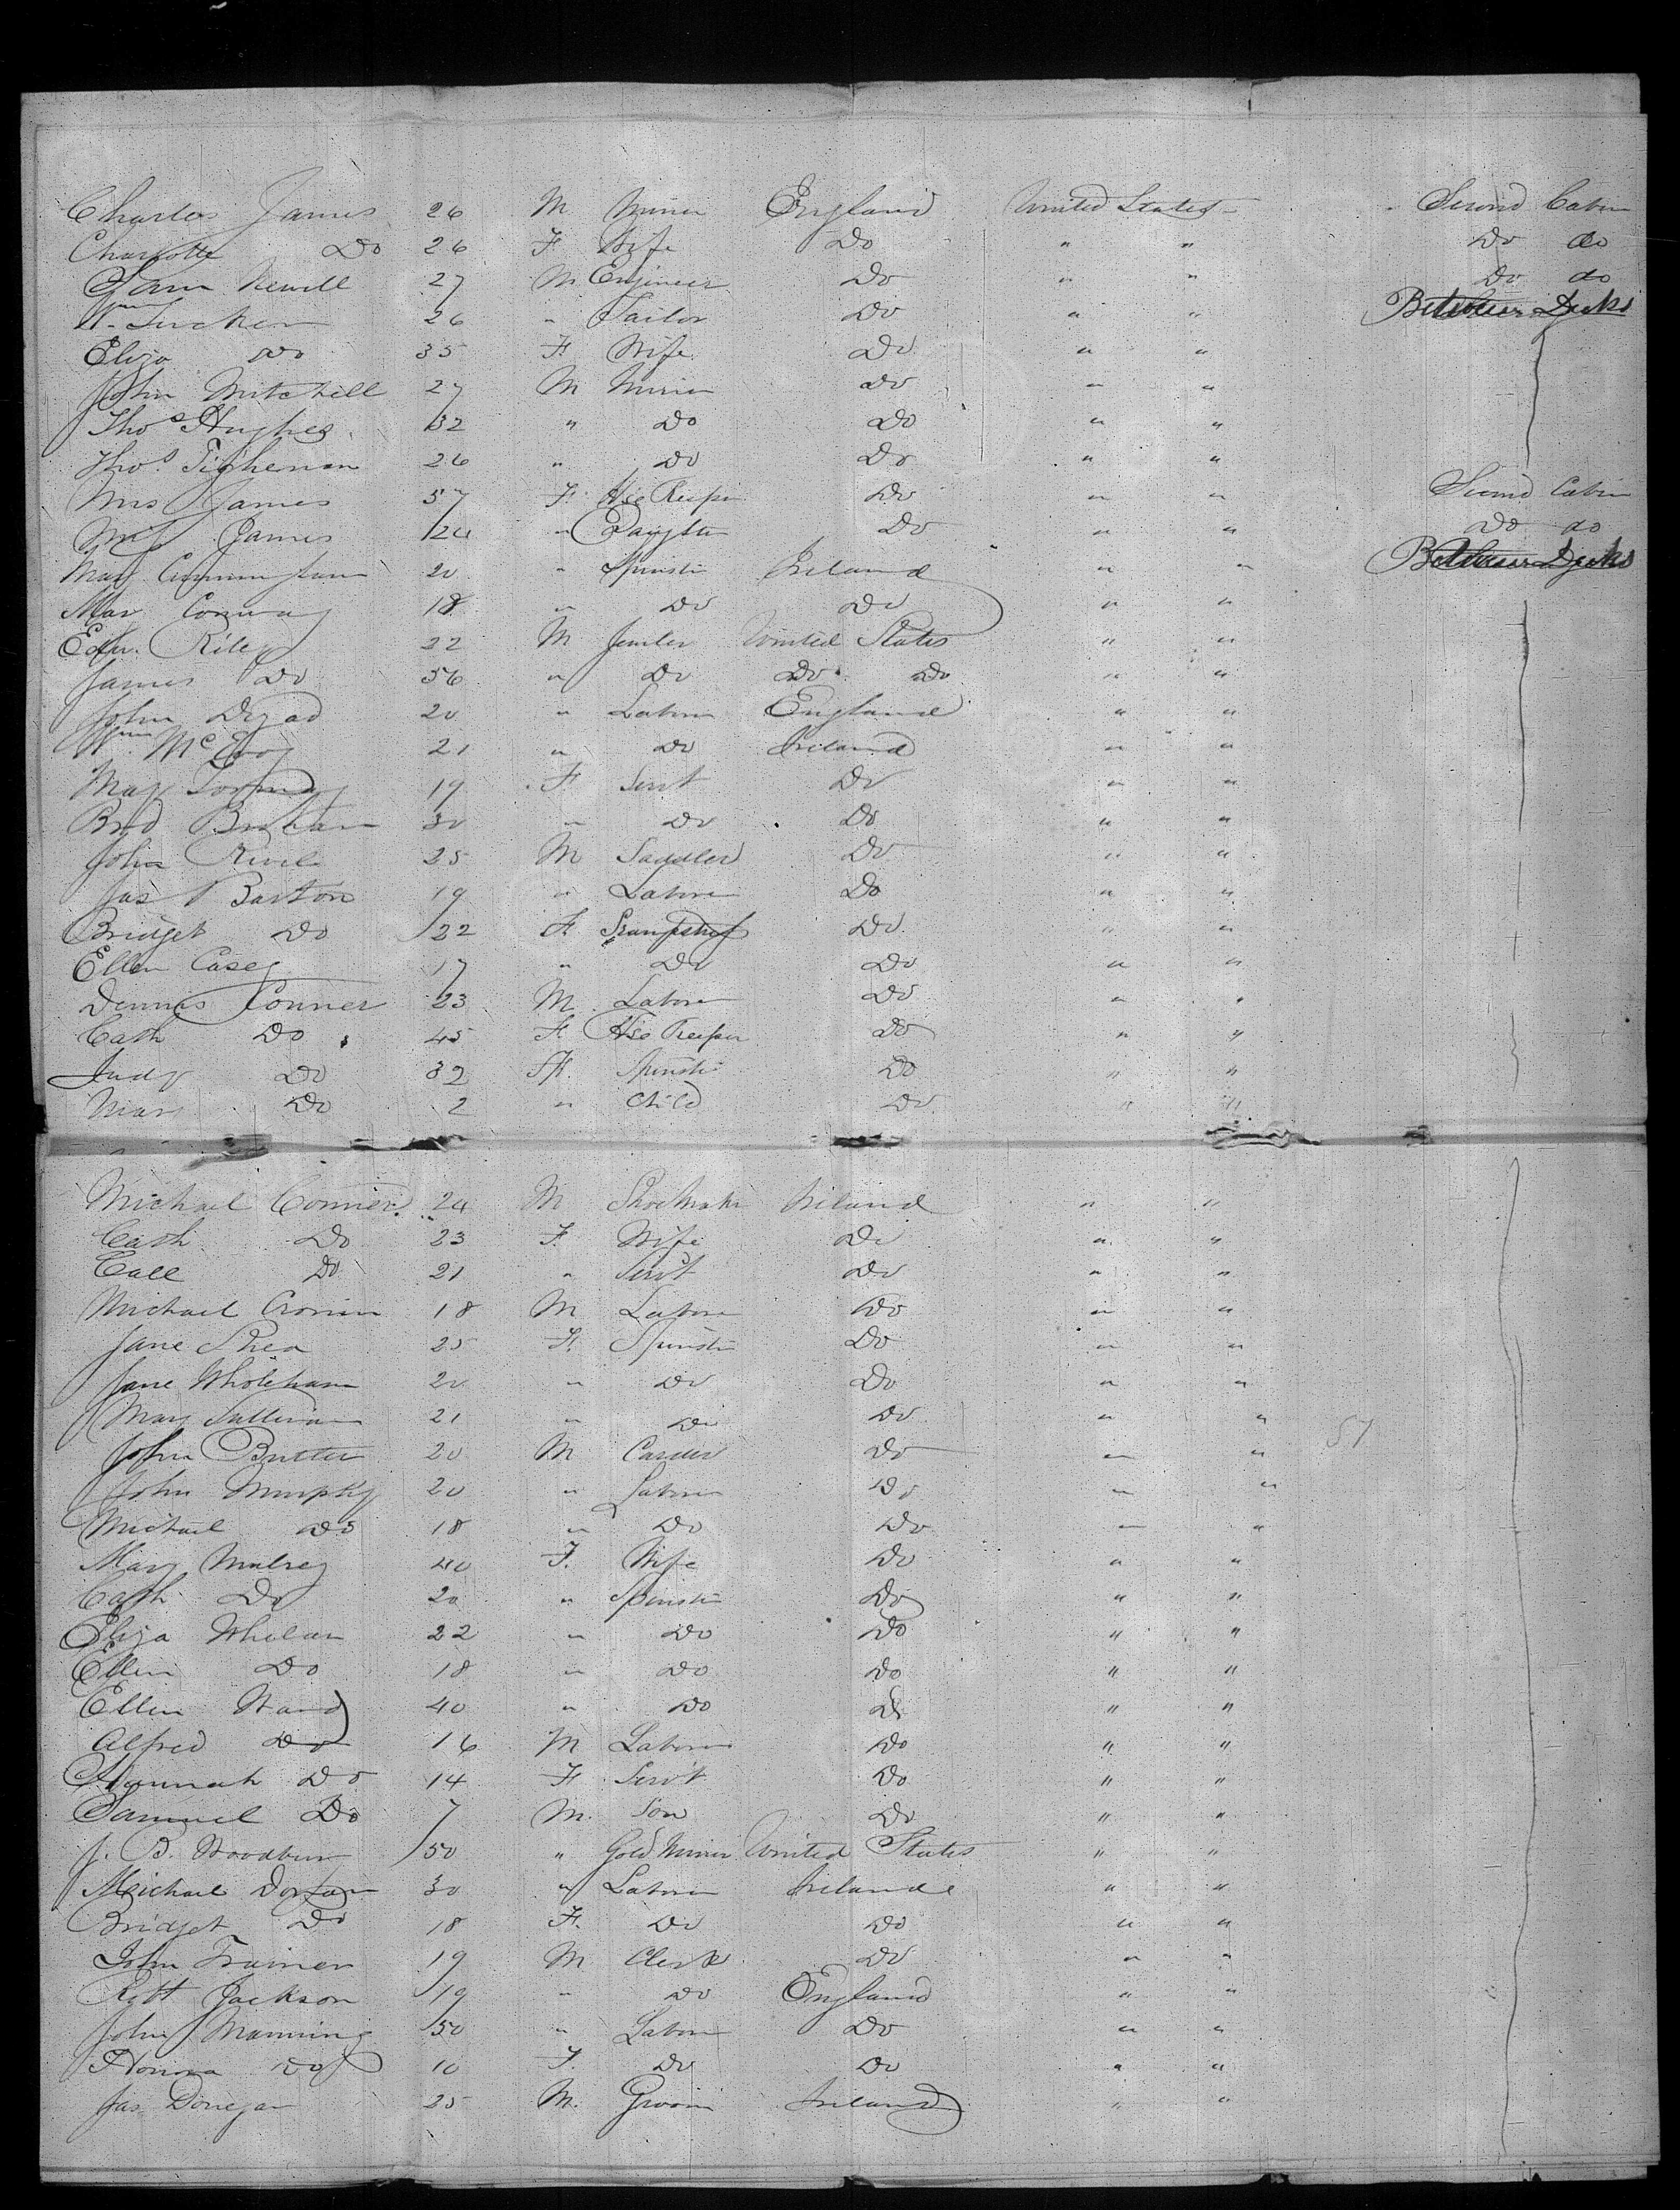 Charles James 26 M Miner England United States Second Cabin
Charlotte Do 26 F Wife Do " " Do do
Sam Newell 27 M Engineer Do " " Do do
Wm Tucker 26 " Tailor Do " " Between Decks
Eliza Do 35 F Wife Do " "
John Mitchell 27 M Miner Do " "
Thos Hughes 32 " Do Do " "
Thos. 26 " Do Do " "
Mrs James 57 F Hse Keeper Do " " Second Cabin
Miss James 24 " Daughter Do " " Do do
Mary Cunningham 20 " Spinster Ireland " " Between Decks
Mary Conway 18 " Do Do " "
Edw. Riley 22 M Jewler United States " "
James Do 56 " Do Do Do " "
John 20 " Labore England " "
Wm. McEvoy 21 " Do Ireland " "
Mary 19 F Servt Do " "
Brid 30 " Do Do " "
John 25 M Saddler Do " "
Jas Barton 19 " Labore Do " "
Bridget Do 22 F Do " "
Ellen Casey 17 " Do Do " "
Dennis Conner 23 M Labore Do " "
Cath Do 45 F Hse Keeper Do " "
Judy Do 32 F. Spinster Do " "
Mary Do 2 " Child Do " "
Michael Conner. 24 M Shoe Maker Ireland " "
Cath Do 23 F. Wife Do " "
Do 21 " Servt Do " "
Michael Cronin 18 M Labore Do " "
Jane Shea 25 F. Spinster Do " "
Jane 20 " Do Do " "
Mary Sullivan 21 " Do Do " "
John Butler 20 M Do " " 51
John Murphy 20 " Labore Do " "
Michael Do 18 " Do Do " "
Mary 40 F. Wife Do " "
Cath Do 20 " Spinster Do " "
Eliza Whelan 22 " Do Do " "
Ellen Do 18 " Do Do " "
Ellen Ward 40 " Do Do " "
Alfred Do 16 M Labore Do " "
Hannah Do 14 F Servt Do " "
Samuel Do 7 M. Son Do " "
J. B. Woodburn 50 " Gold Miner United States " "
Michael 30 " Labore Ireland " "
Bridget Do 18 F. Do Do " "
John Trainer 19 M Clerk Do " "
Robt Jackson 19 " Do England " "
John Manning 50 " Labore Do " "
Honora Do 10 F. Do Do " "
Jas Donegan 25 M. Groom Ireland " "